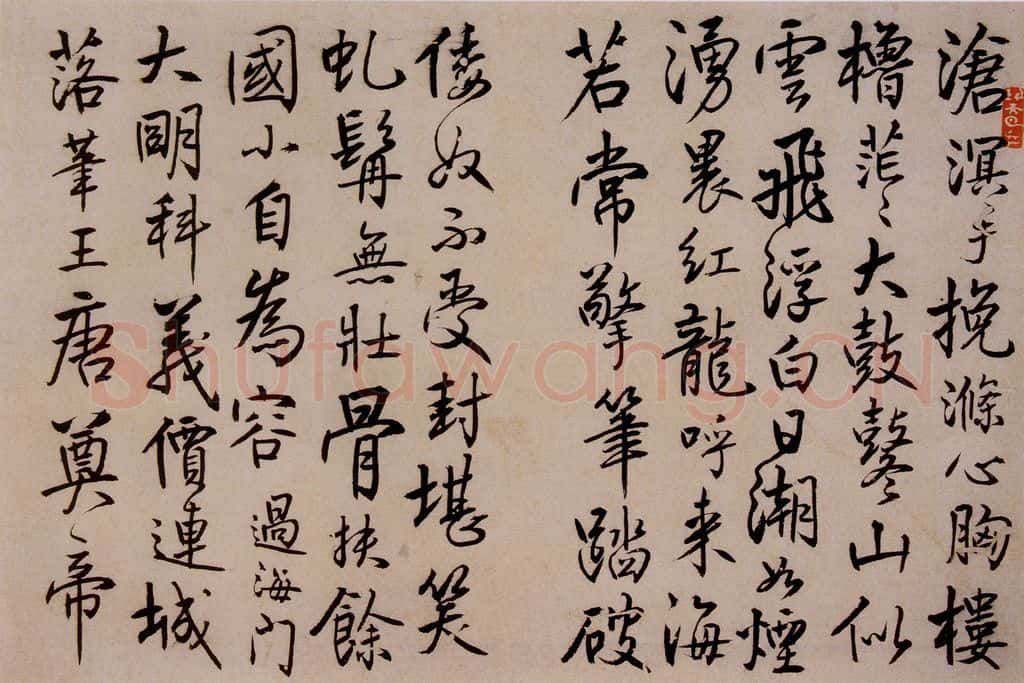 滄溟手挽滌心胸樓
櫓茫〻大鼓鼕山似
雲飛浮白日潮如煙
湧裹紅龍呼来海
若常擎筆踏破
倭奴不受封堪笑
虬髯無壯骨扶餘
國小自為容 過海門
大明科義價連城
落筆王唐奠〻帝
Shufawang.CN